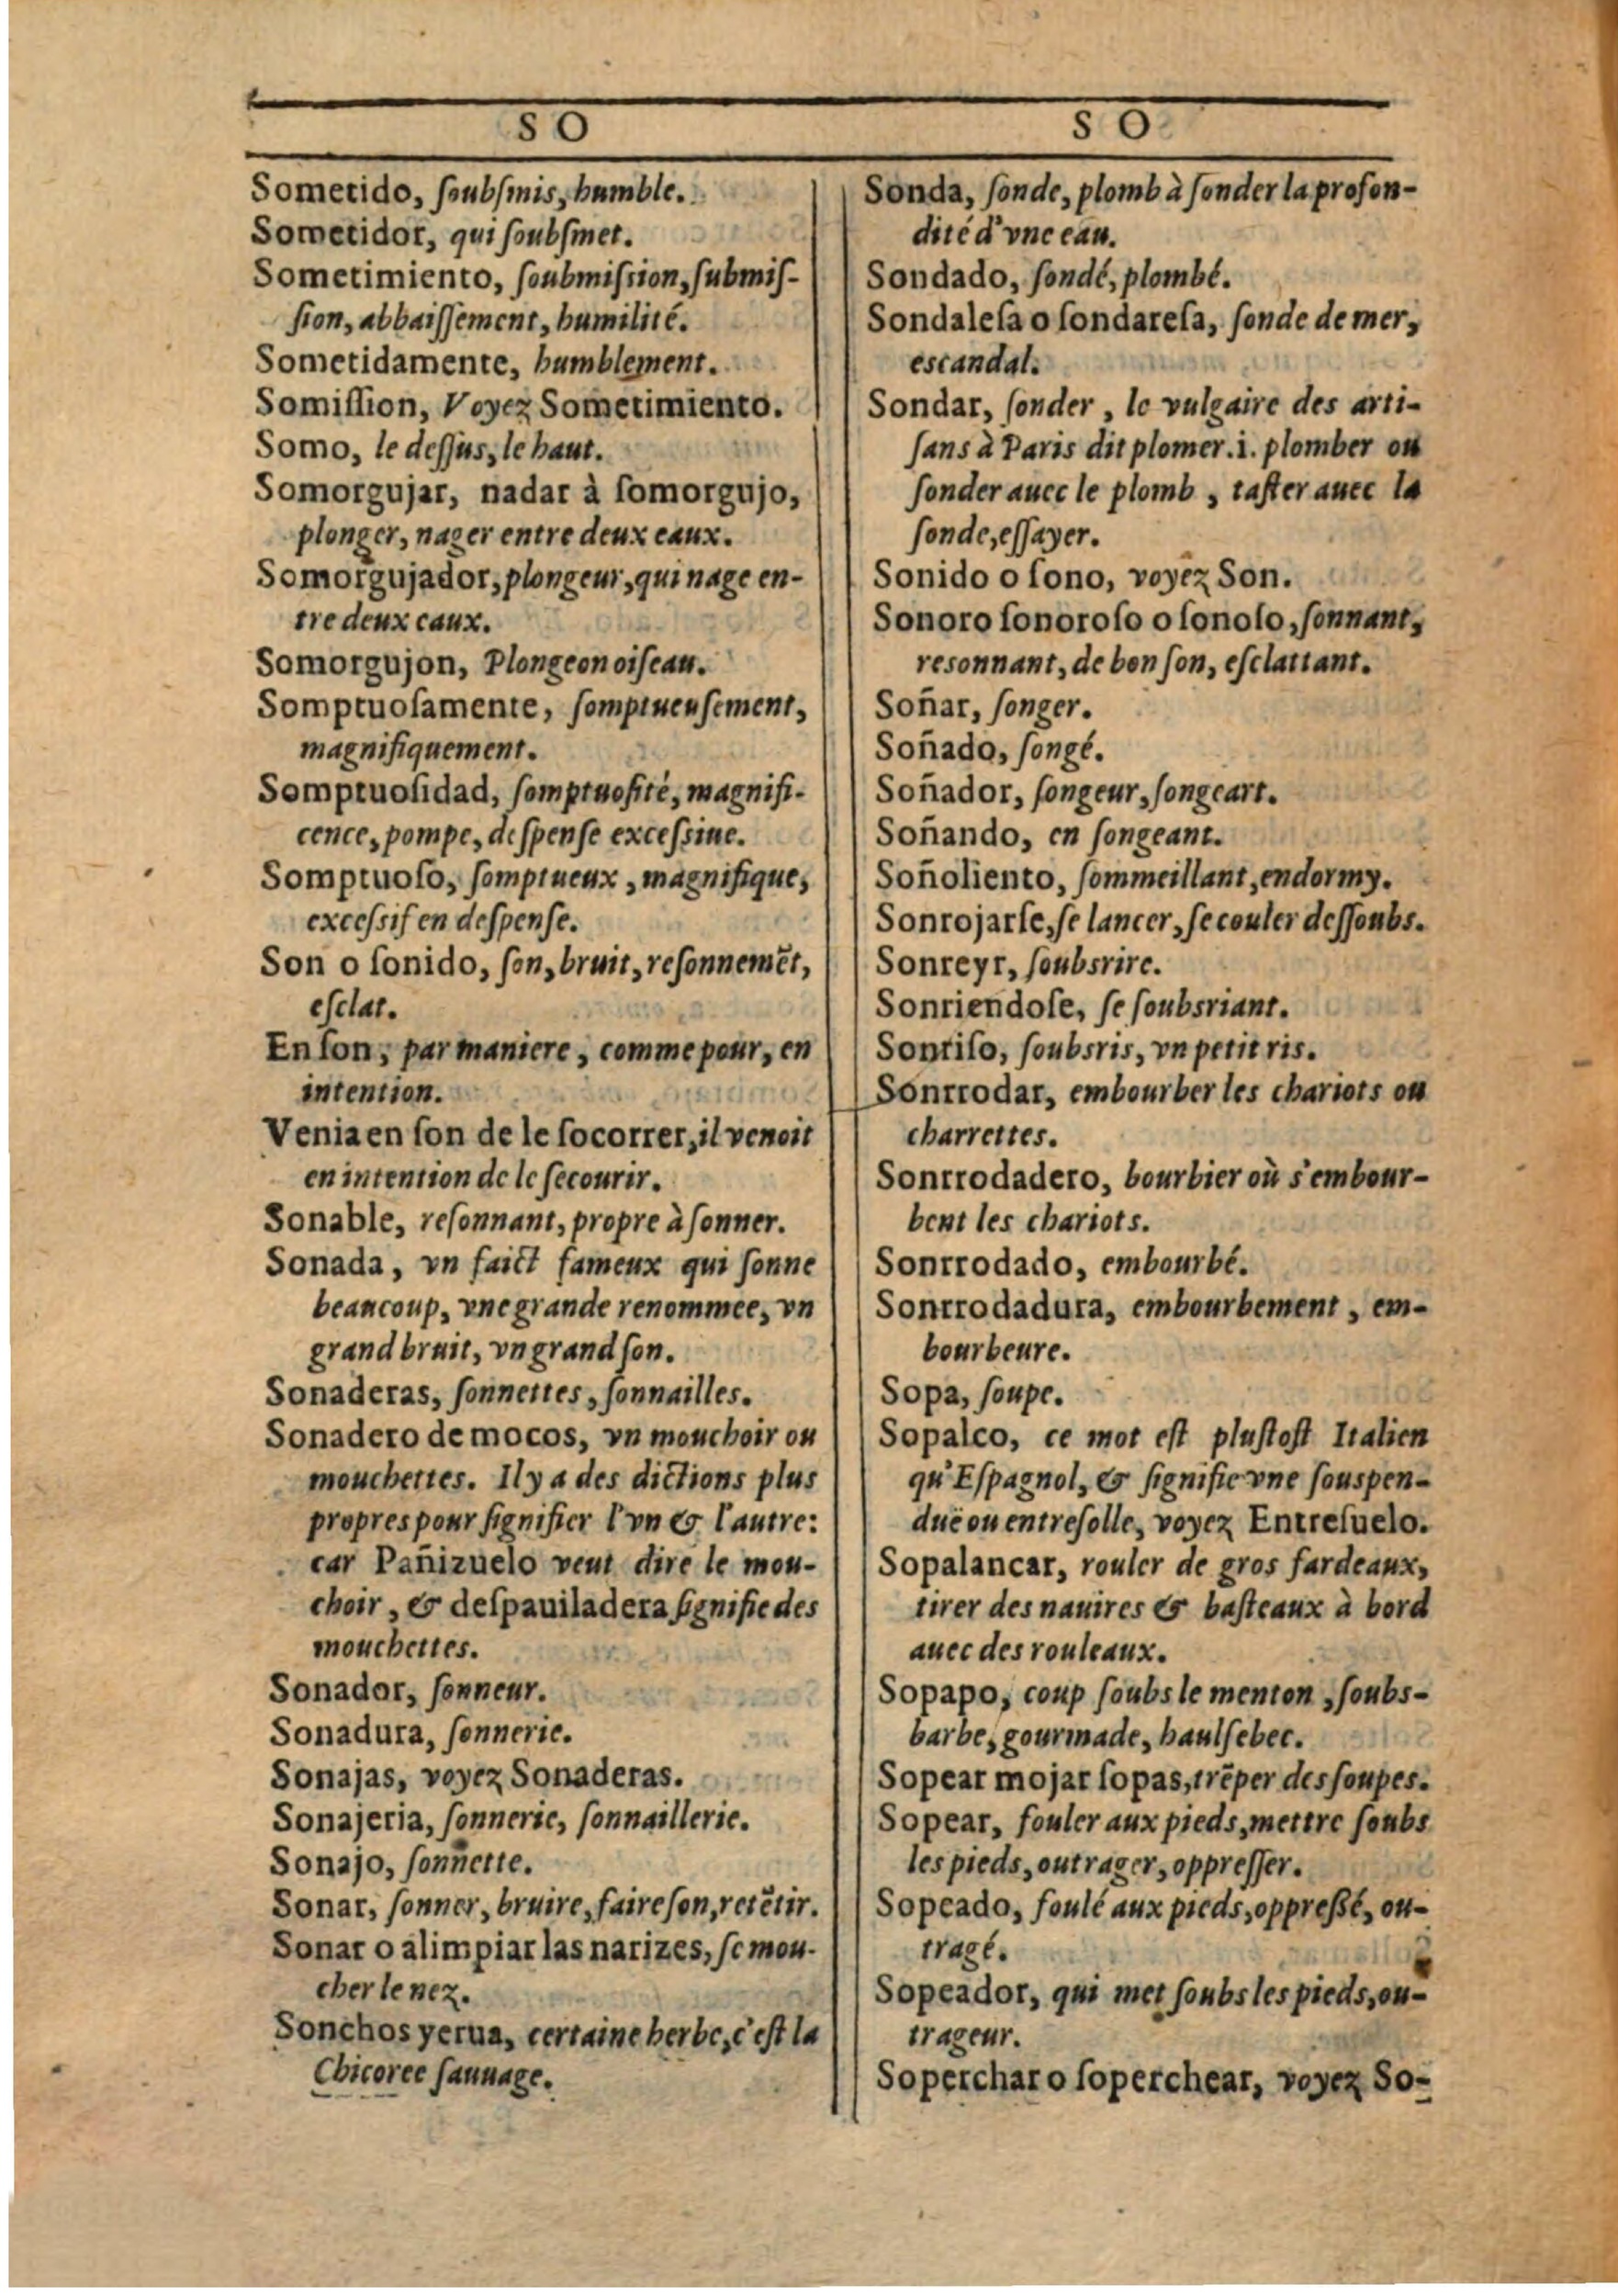 SO
Sometido, ſoubſmis, humble.
Sometidor, qui ſoubſmet.
Sometimiento, ſoubmiſsion, ſubmiſ-
ſion, abbaiſſement, humilité.
Sometidamente, humblement.
Somiſſion, Voyez Sometimiento.
Somo, le deſſus, le haut.
Somorgujar, nadar à ſomorgujo,
plonger, nager entre deux eaux.
Somorgujador, plongeur, qui nage en-
tre deux eaux.
Somorgujon, Plongeon oiſeau.
Somptuoſamente, ſomptueuſement,
magnifiquement.
Somptuoſidad, ſomptuoſité, magnifi-
cence, pompe, deſpenſe exceſsiue.
Somptuoſo, ſomptueux, magnifique,
exceſsif en deſpenſe.
Son o ſonido, ſon, bruit, reſonnemẽt,
eſclat.
En ſon, par maniere, comme pour, en
intention.
Venia en ſon de le ſocorrer, il venoit
en intention de le ſecourir.
Sonable, reſonnant, propre à ſonner.
Sonada, vn faict fameux qui ſonne
beaucoup, vne grande renommee, vn
grand bruit, vn grand ſon.
Sonaderas, ſonnettes, ſonnailles.
Sonadero de mocos, vn mouchoir ou
mouchettes. Il y a des dictions plus
propres pour ſignifier l'vn & l'autre:
car Pañizuelo veut dire le mou-
choir, & deſpauiladera ſignifie des
mouchettes.
Sonador, ſonneur.
Sonadura, ſonnerie.
Sonajas, voyez Sonaderas.
Sonajeria, ſonnerie, ſonnaillerie.
Sonajo, ſonnette.
Sonar, ſonner, bruire, faire ſon, retẽtir.
Sonar o alimpiar las narizes, ſe mou-
cher le nez.
Sonchos yerua, certaine herbe, c'eſt la
Chicoree ſauuage.
SO
Sonda, ſonde, plomb à ſonder la profon-
dité d'vne eau.
Sondado, ſondé, plombé.
Sondaleſa o ſondareſa, ſonde de mer,
escandal.
Sondar, ſonder, le vulgaire des arti-
ſans à Paris dit plomer. i. plomber ou
ſonder auec le plomb, taſter auec la
ſonde, eſſayer.
Sonido o ſono, voyez Son.
Sonoro ſonoroſo o ſonoſo, ſonnant,
resonnant, de bon ſon, eſclattant.
Soñar, ſonger.
Soñado, ſongé.
Soñador, ſongeur, ſongeart.
Soñando, en ſongeant.
Soñoliento, ſommeillant, endormy.
Sonrojarſe, ſe lancer, ſe couler deſſoubs.
Sonreyr, ſoubsrire.
Sonriendoſe, ſe ſoubsriant.
Sonriſo, ſoubsris, vn petit ris.
Sonrrodar, embourber les chariots ou
charrettes.
Sonrrodadero, bourbier où s'embour-
bent les chariots.
Sonrrodado, embourbé.
Sonrrodadura, embourbement, em-
bourbeure.
Sopa, ſoupe.
Sopalco, ce mot eſt pluſtoſt Italien
qu'Eſpagnol, & ſignifie vne ſouspen-
duë ou entreſolle, voyez Entreſuelo.
Sopalancar, rouler de gros fardeaux,
tirer des nauires & baſteaux à bord
auec des rouleaux.
Sopapo, coup ſoubs le menton, ſoubs-
barbe, gourmade, haulſebec.
Sopear mojar ſopas, trẽper des ſoupes.
Sopear, fouler aux pieds, mettre ſoubs
les pieds, outrager, oppreſſer.
Sopeado, foulé aux pieds, oppreßé, ou-
tragé.
Sopeador, qui met ſoubs les pieds, ou-
trageur.
Soperchar o ſoperchear, voyez So-